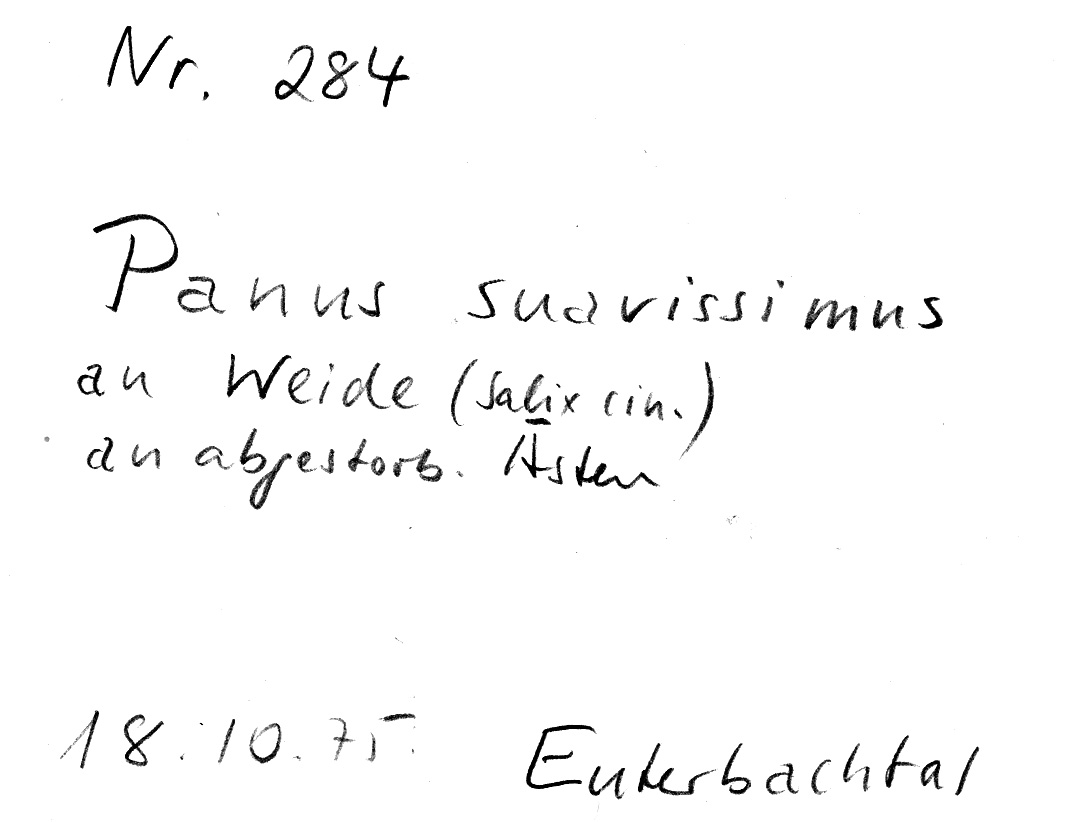 Nr. 284
Panus suavissimus
an Weide (Salix cin.)
an abgestorb. Ästen
18.10.75. Euterbachtal